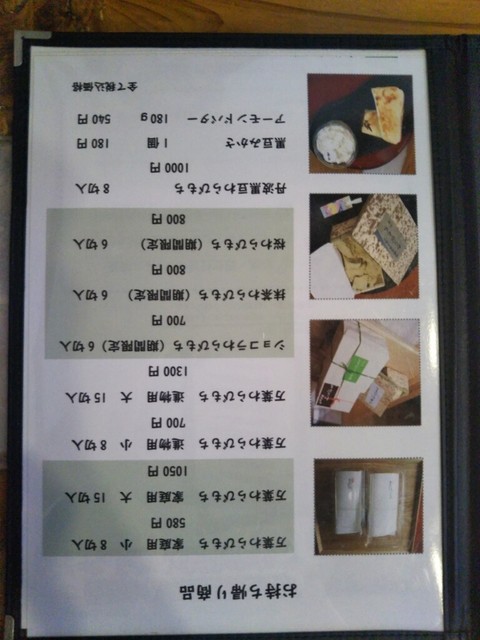 お持ち帰り商品
万葉わらびもち 家庭用 小 8切入
580円
万葉わらびもち 家庭用 大 15切入
1050円
万葉わらびもち 進物用 小 8切入
700円
万葉わらびもち 進物用 大 15切入
1300円
ショコラわらびもち（期間限定）6切入
700円
抹茶わらびもち（期間限定） 6切入
800円
桜わらびもち（期間限定） 6切入
800円
丹波黒豆わらびもち 8切入
1000円
黒豆みかさ 1個 180円
アーモンドバター 180g 540円
全て税込価格